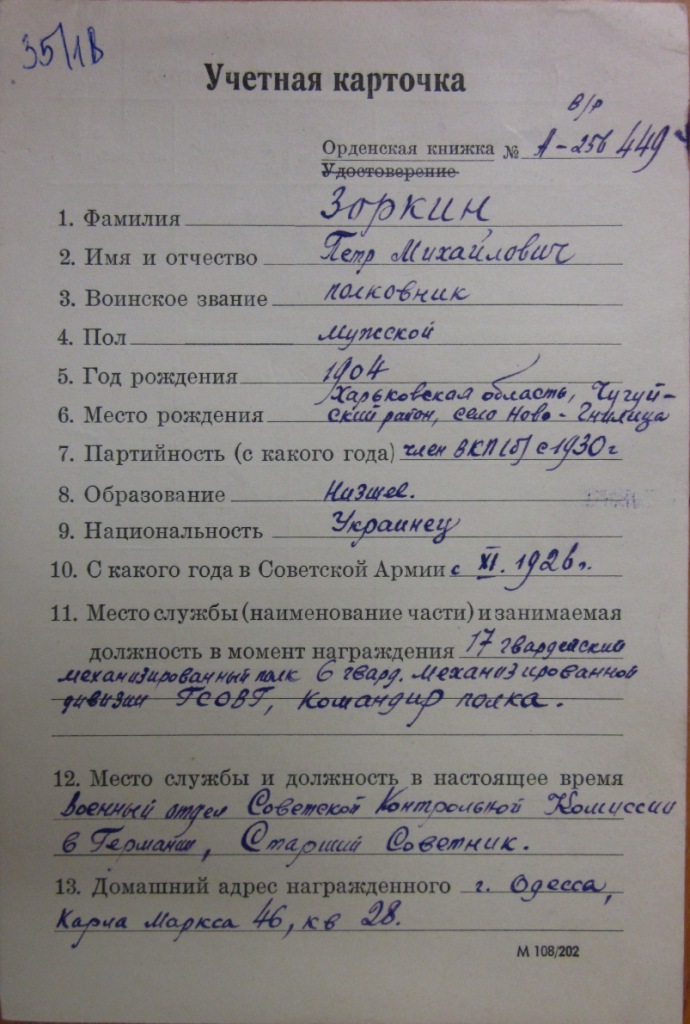 35/1В
Учетная карточка
в/р
Орденская книжка № А-256449
Удостоверение
1. Фамилия Зоркин
2. Имя и отчество Петр Михайлович
3. Воинское звание полковник
4. Пол мужской
5. Год рождения 1904
Харьковская область, Чугуй-
6. Место рождения ский район, село Ново-Гнилица
7. Партийность (с какого года) член ВКП(б) с 1930 г
8. Образование Низшее.
9. Национальность Украинец
10. С какого года в Советской Армии с XI. 1926 г.
11. Место службы (наименование части) и занимаемая
должность в момент награждения 17 гвардейский
механизированный полк 6 гвард. механизированной
дивизии ГСОВГ, командир полка.
12. Место службы и должность в настоящее время
Военный отдел Советской Контрольной Комиссии
в Германии, Старший Советник.
13. Домашний адрес награжденного г. Одесса,
Карла Маркса 46, кв 28.
М 108/202